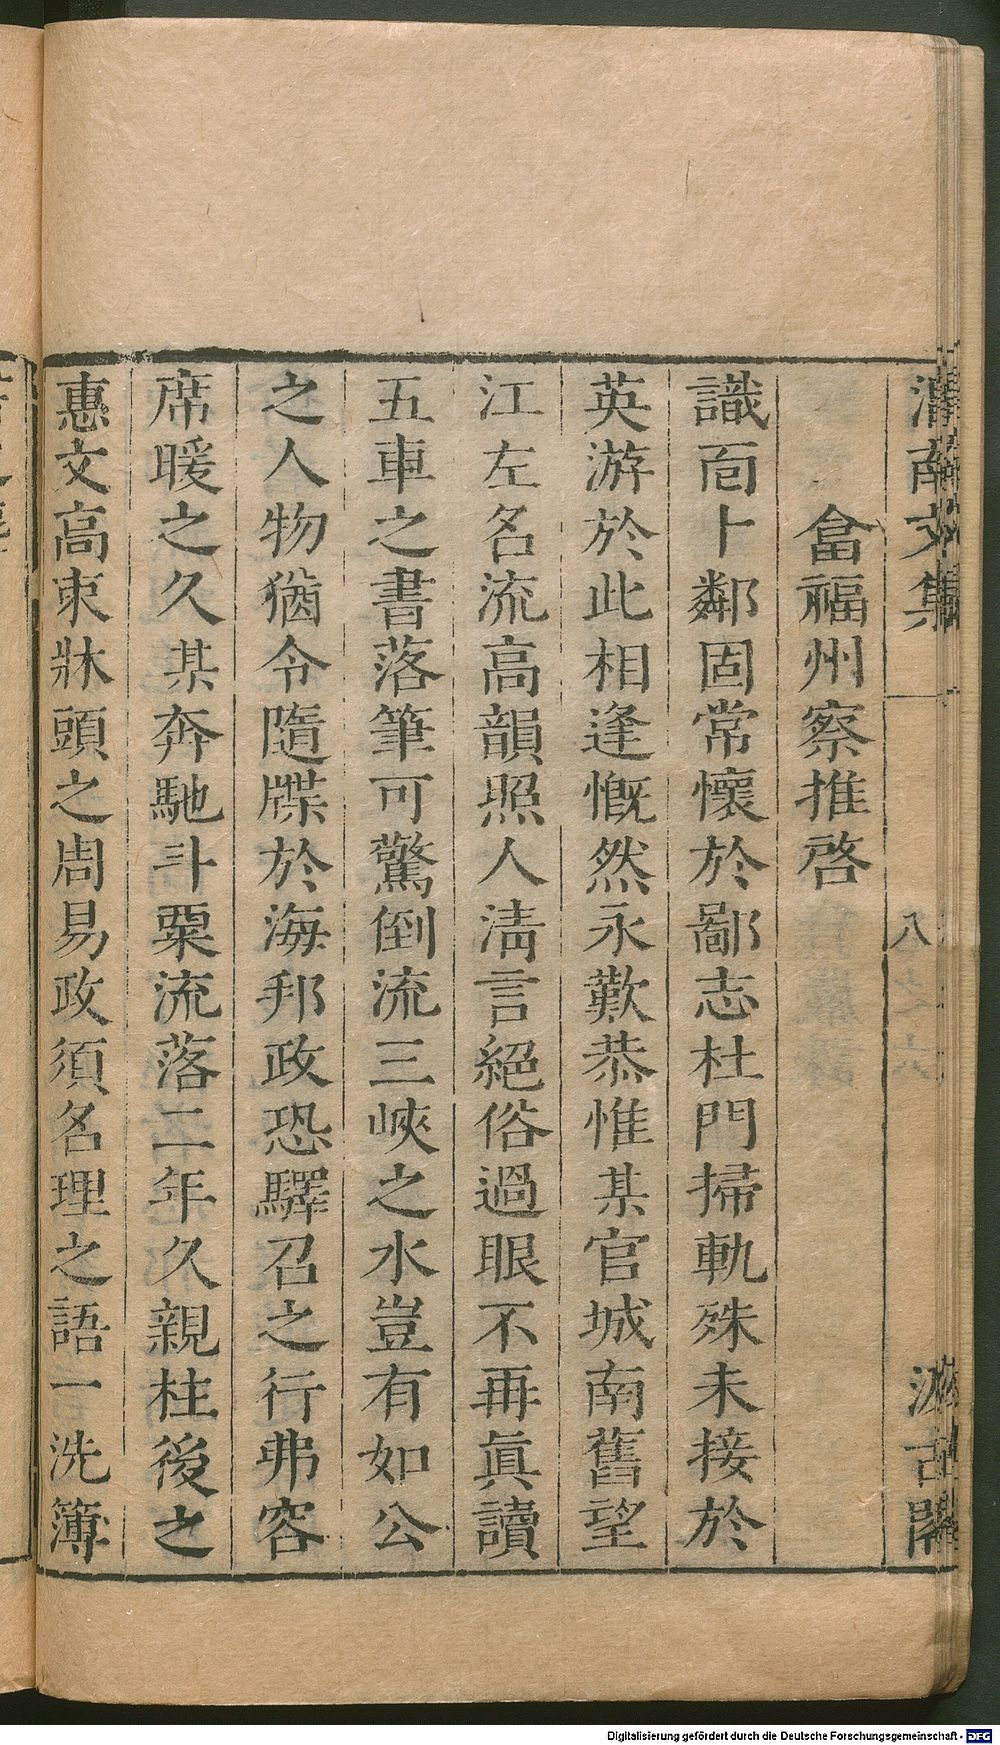 渭南文集
八
汲古閣
畣福州察推啓
識面卜鄰固常懷於鄙志杜門掃軌殊未接於
英游於此相逢慨然永歎恭惟某官城南舊望
江左名流高韻照人清言絕俗過眼不再眞讀
五車之書落筆可驚倒流三峽之水豈有如公
之人物猶令隨牒於海邦政恐驛召之行弗容
席暖之久某奔馳斗粟流落二年久親柱後之
惠文高束牀頭之周易政須名理之語一洗簿
Digitalisierung gefördert durch die Deutsche Forschungsgemeinschaft - DFG